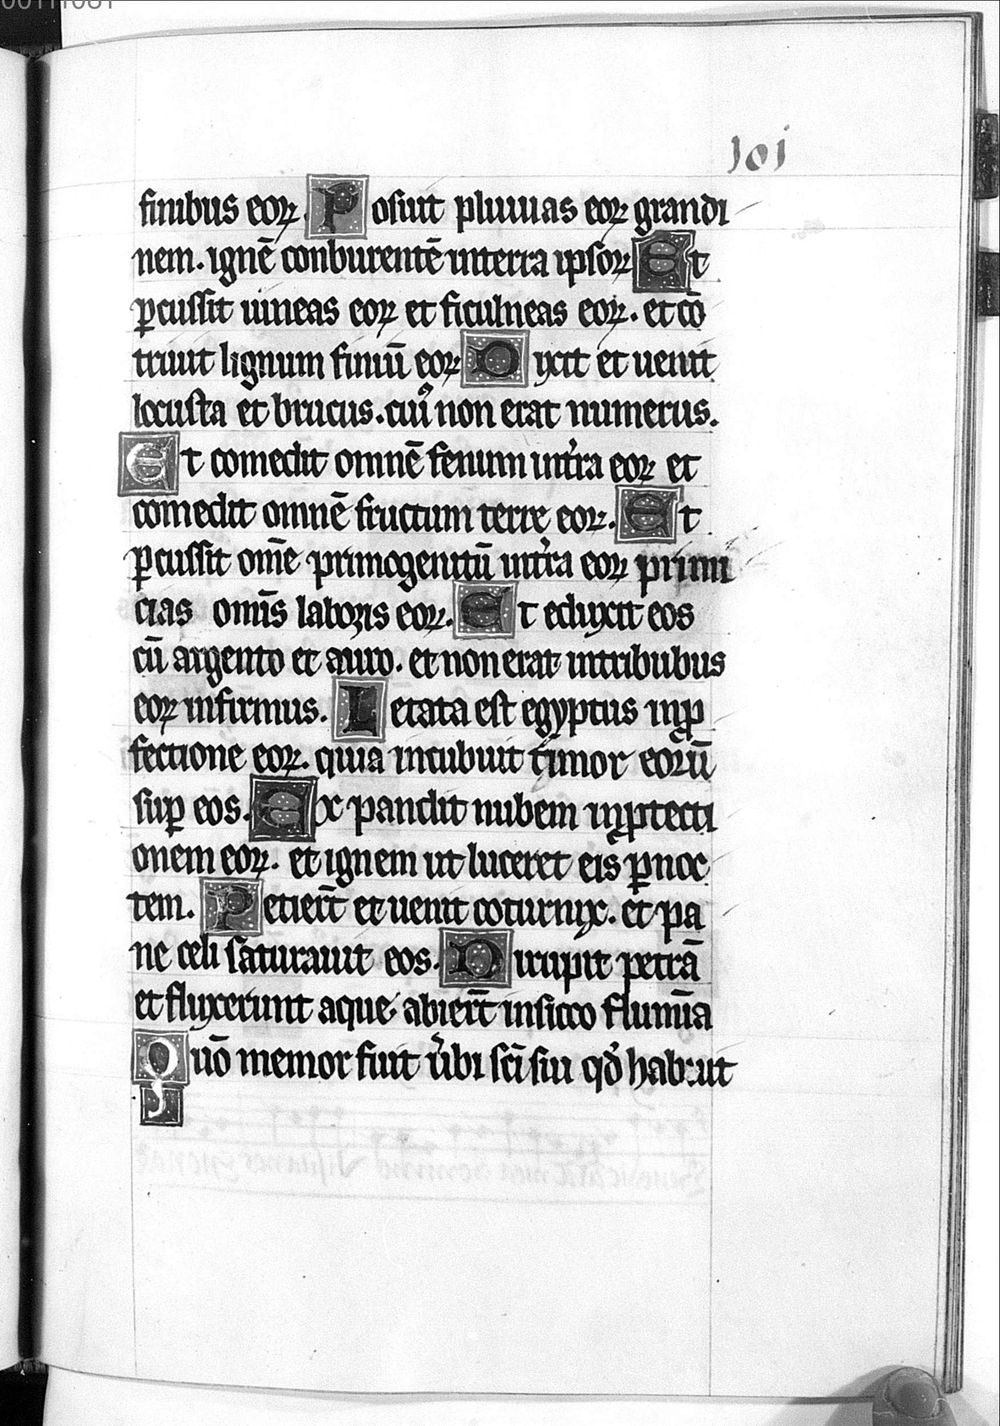 00111081
101
finibus eoꝝ. Posuit pluuias eoꝝ grandi
nem. ignē conburentē interra ipsoꝝ Et
ꝑcussit uineas eoꝝ et ficulneas eoꝝ. et cō
triuit lignum finiū eoꝝ Dixit et uenit
locusta et brucus. cuiꝰ non erat numerus.
Et comedit omnē fenum intͥra eoꝝ et
comedit omnē fructum terre eoꝝ. Et
ꝑcussit om̄e primogenitū intͥra eoꝝ primi
cias om̄is laboris eoꝝ. Et eduxit eos
cū argento et auro. et non erat intribubus
eoꝝ infirmus. Letata est egyptus inꝓ
fectione eoꝝ. quia incubuit timor eorū
suꝑ eos. Expandit nubem inꝓtecti
onem eoꝝ. et ignem ut luceret eis ꝑ noc
tem. Petierūt et uenit coturnix. et pa
ne celi saturauit eos. Dirupit petrā
et fluxerunt aque abierūt insicco flumīa
Quō memor fuit uͥbi sc̄i sui qd̓ habuit